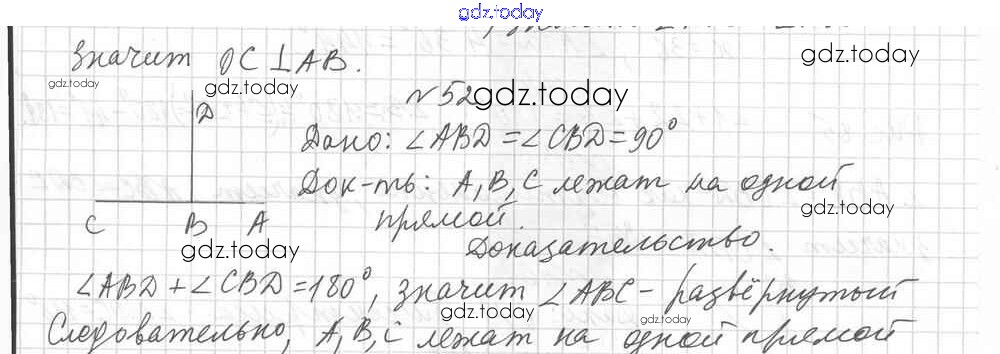 gdz.today
Значит OC⊥AB.
gdz.today
gdz.today
gdz.today
№ 52
gdz.today
D
Дано: ∠ABD = ∠CBD = 90°
Док-ть: A, B, C лежат на одной
прямой.
gdz.today
C B A
gdz.today
Доказательство.
∠ABD + ∠CBD = 180°, значит ∠ABC - развёрнутый
gdz.today
Следовательно, A, B, C лежат на одной прямой